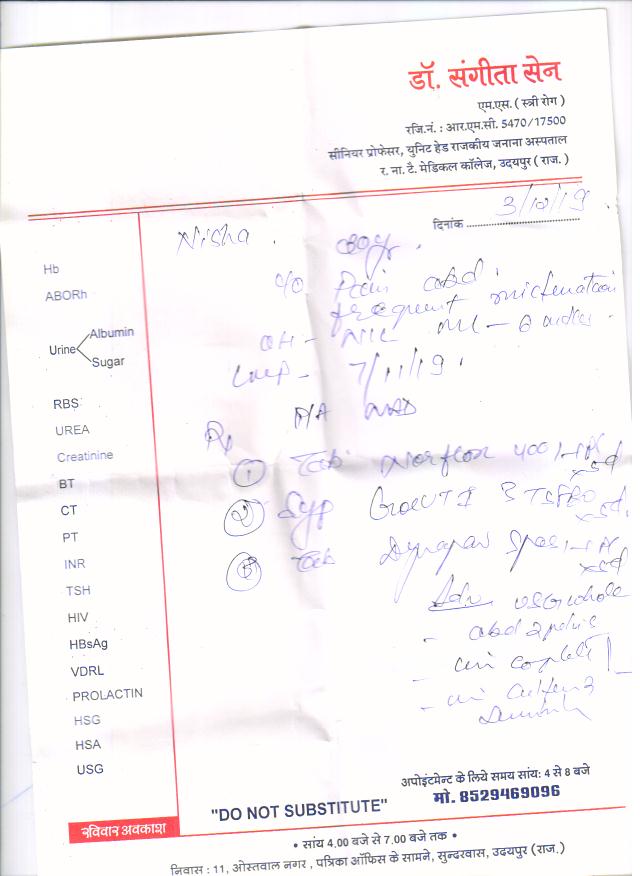 डॉ. संगीता सेन
एम.एस. ( स्त्री रोग )
रजि.नं. : आर.एम.सी. 5470/17500
सीनियर प्रोफेसर, यूनिट हेड राजकीय जनाना अस्पताल
र. ना. टै. मेडिकल कॉलेज, उदयपुर ( राज. )
दिनांक
Nisha
c/o Pain abd.
frequent micturation
OH - NIL ML - 6 mths.
LMP - 7/11/19.
P/A NAD
Rx
① Tab. Norflox 400 1-1 x 5d
② Syp x 5d
③ Tab Dynapar Spas 1-1 x 5d
Adv USG whole
- abd & pelvis
-
-
Hb
ABORh
Urine Albumin
Sugar
RBS
UREA
Creatinine
BT
CT
PT
INR
TSH
HIV
HBsAg
VDRL
PROLACTIN
HSG
HSA
USG
रविवार अवकाश
"DO NOT SUBSTITUTE"
अपोइंटमेन्ट के लिये समय सांय: 4 से 8 बजे
मो. 8529469096
• सांय 4.00 बजे से 7.00 बजे तक •
निवास : 11, ओस्तवाल नगर , पत्रिका ऑफिस के सामने, सुन्दरवास, उदयपुर (राज.)